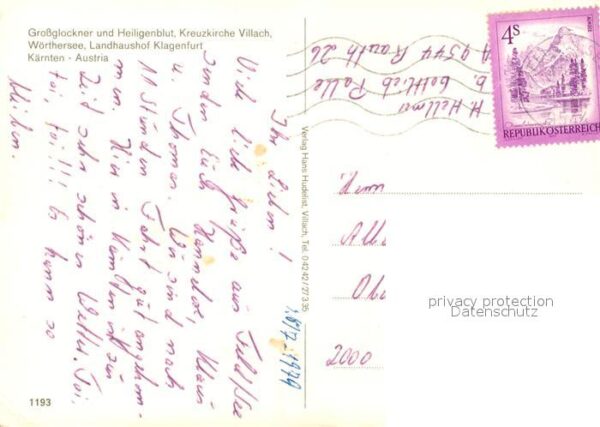 Großglockner und Heiligenblut, Kreuzkirche Villach,
Wörthersee, Landhaushof Klagenfurt
Kärnten - Austria
Ihr Lieben!
Viele liebe Grüße aus Feld/See
senden Euch Hannelore, Klaus
u. Thomas. Wir sind nach
11 Stunden Fahrt gut angekom-
men. Hier in Kärnten ist zur
Zeit sehr schönes Wetter. Toi,
toi, toi!!! Es kann so
bleiben.
1193
Verlag Hans Huderlist, Villach, Tel. 0 42 42 / 27 3 35
16/7-1979
H. Hellmer
b. Gottlieb Palle
A 9544 Rauth 26
4S
REPUBLIK ÖSTERREICH
Herrn
2000
privacy protection
Datenschutz